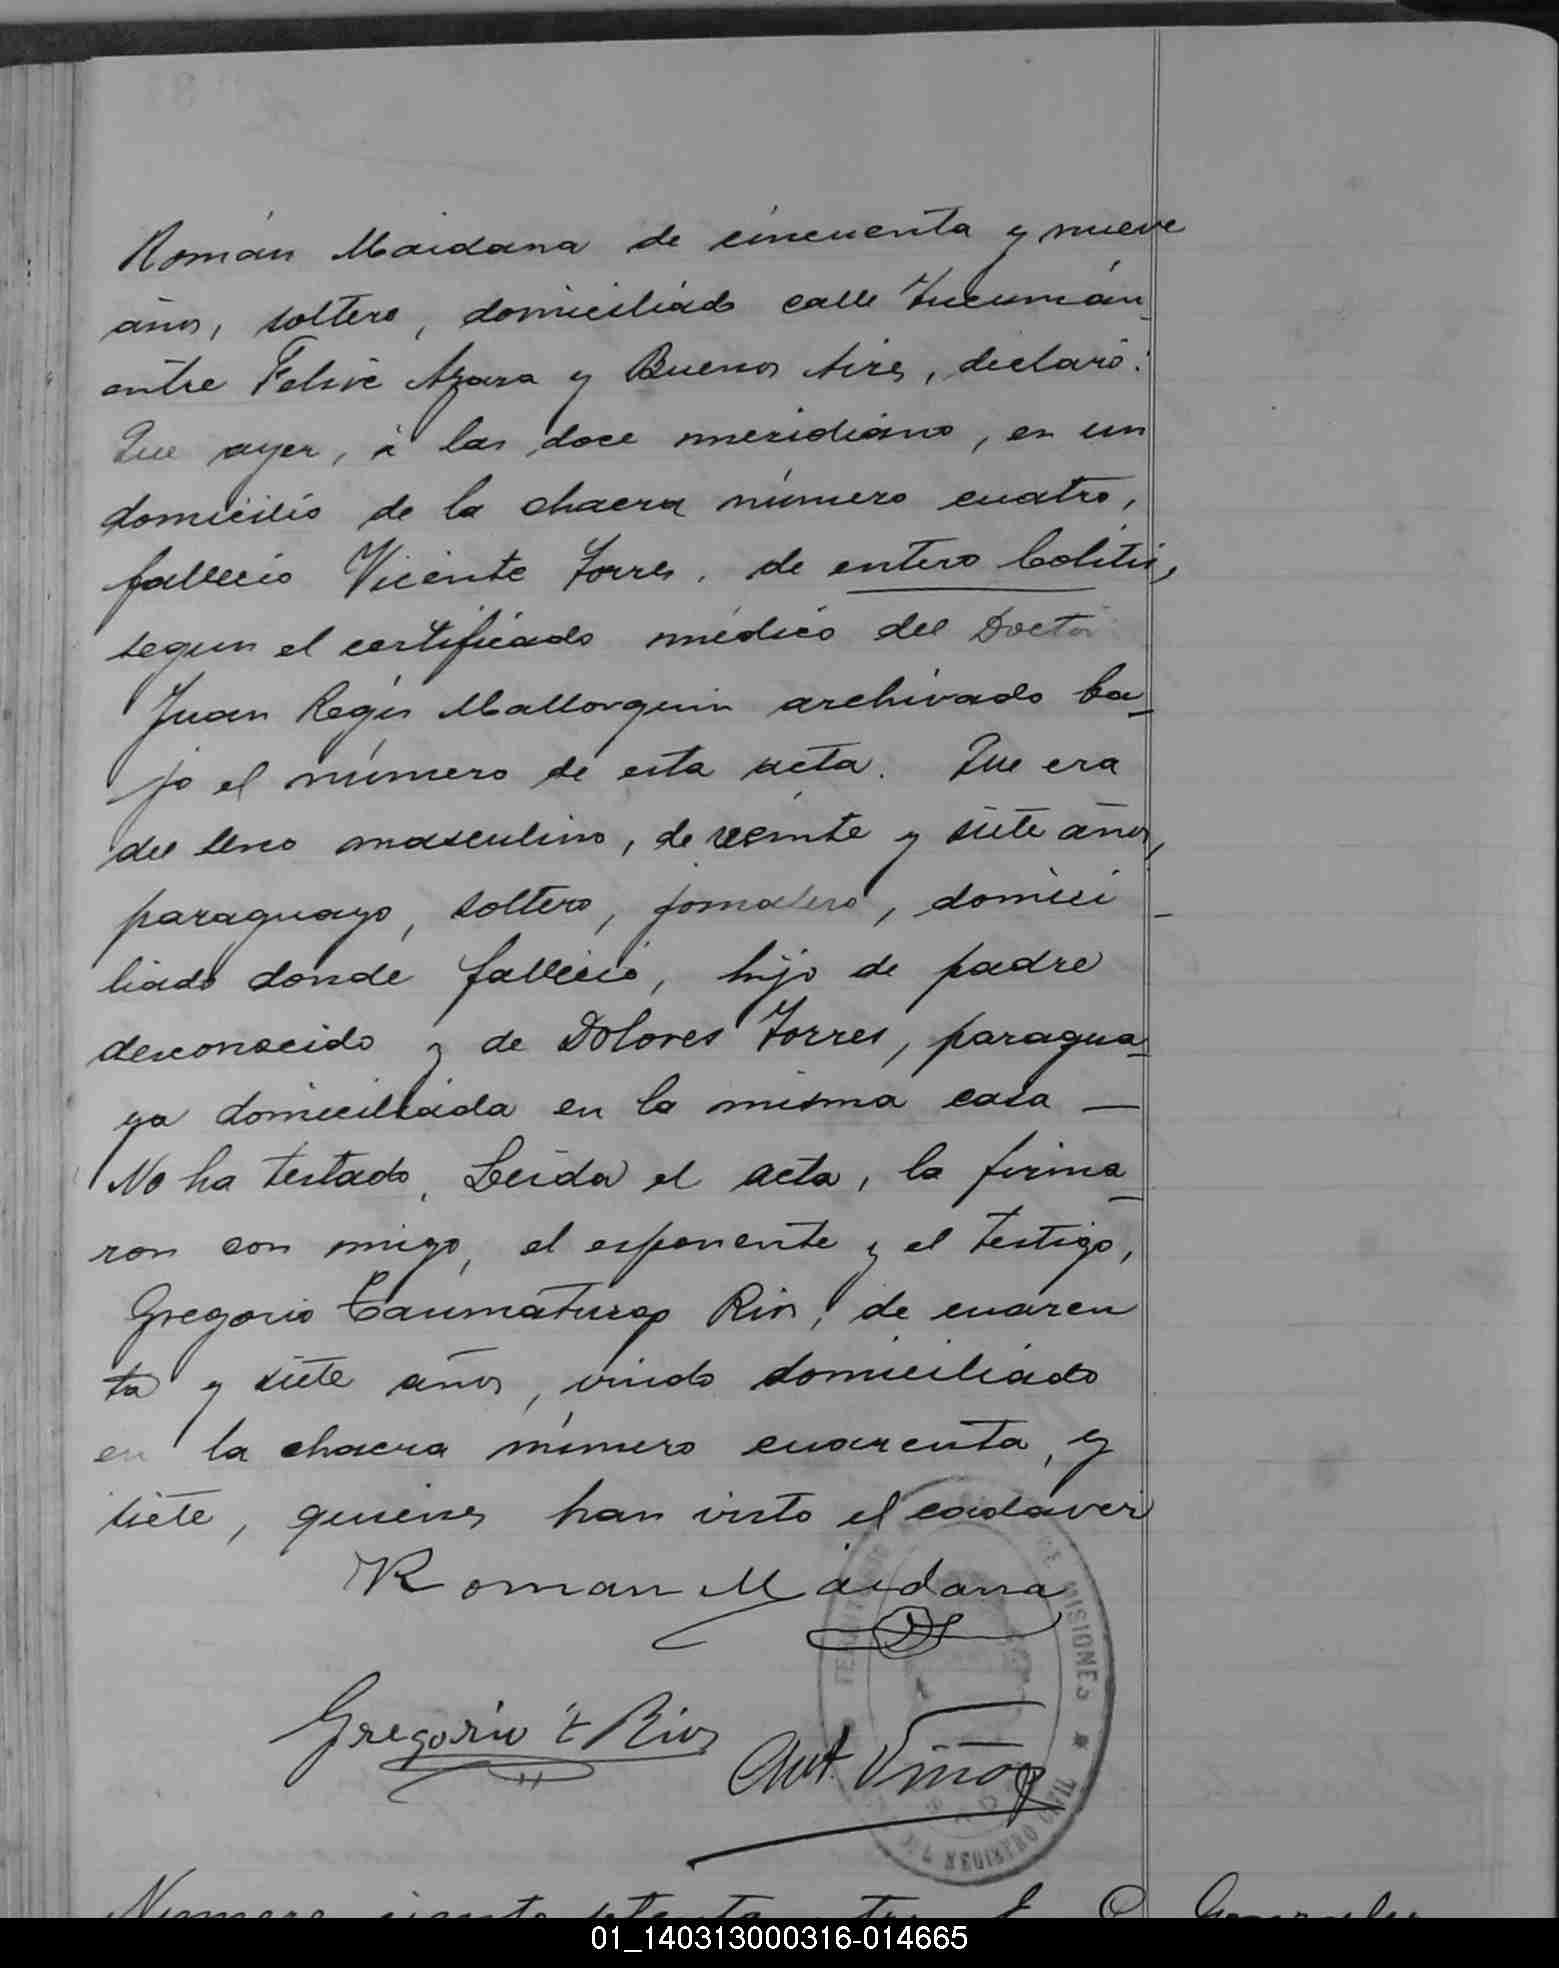 Román Maidana de cincuenta y nueve
años, soltero, domiciliado calle Tucumán
entre Felix Azara y Buenos Aires, declaró:
Que ayer, á las doce meridiano, en un
domicilio de la chacra número cuatro,
falleció Vicente Torres, de entero Colitis,
segun el certificado médico del Doctor
Juan Regis Mallorquin archivado ba-
jo el número de esta acta. Que era
del sexo masculino, de veinte y siete años,
paraguayo, soltero, jornalero, domici-
liado donde falleció, hijo de padre
desconocido y de Dolores Torres, paragua-
ya domiciliada en la misma casa —
No ha testado. Leida el acta, la firma-
ron con migo, el esponente y el testigo,
Gregorio Taumaturgo Rios, de cuaren
ta y siete años, viudo domiciliado
en la chacra número cuarenta, y
siete, quienes han visto el cadaver
Roman Maidana
Gregorio T Rios
Ant. Viñas
TERRITORIO DE MISIONES * REGISTRO CIVIL
Numero ciento setenta y tres
01_140313000316-014665